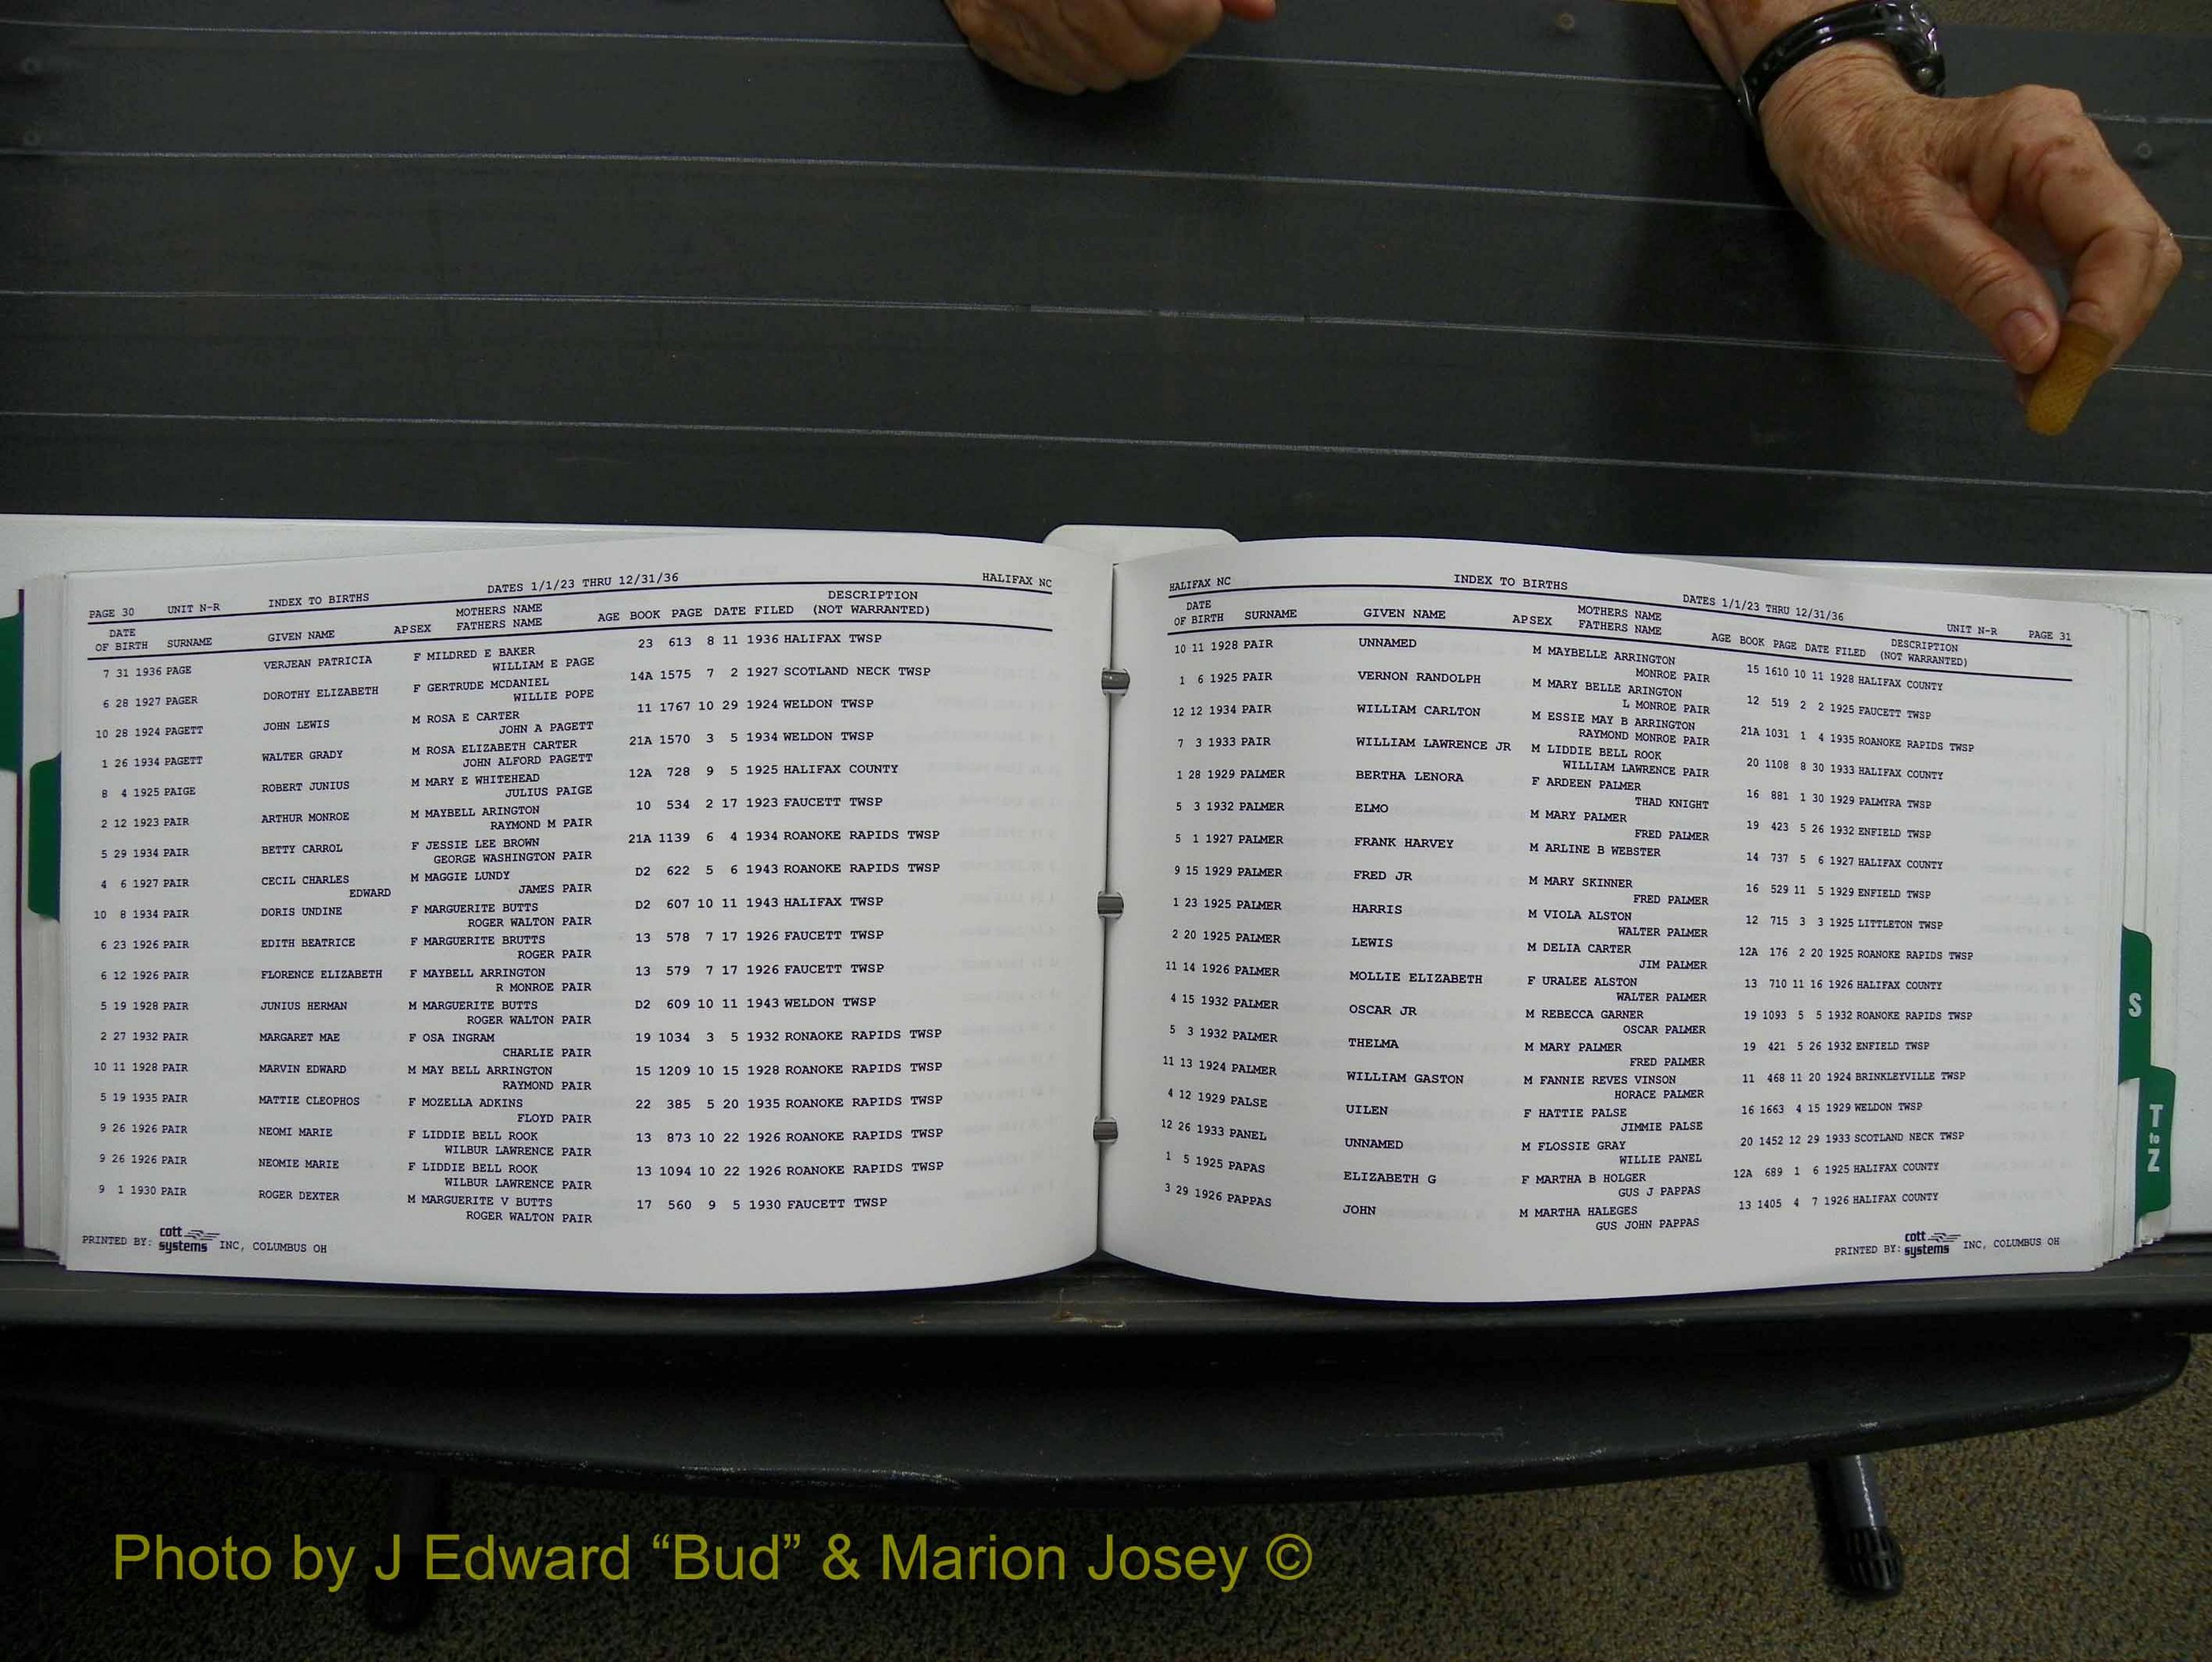 PAGE 30 UNIT N-R INDEX TO BIRTHS DATES 1/1/23 THRU 12/31/36 HALIFAX NC
DATE OF BIRTH SURNAME GIVEN NAME AP SEX MOTHERS NAME FATHERS NAME AGE BOOK PAGE DATE FILED DESCRIPTION (NOT WARRANTED)
7 31 1936 PAGE VERJEAN PATRICIA F MILDRED E BAKER 23 613 8 11 1936 HALIFAX TWSP
WILLIAM E PAGE
6 28 1927 PAGER DOROTHY ELIZABETH F GERTRUDE MCDANIEL 14A 1575 7 2 1927 SCOTLAND NECK TWSP
WILLIE POPE
10 28 1924 PAGETT JOHN LEWIS M ROSA E CARTER 11 1767 10 29 1924 WELDON TWSP
JOHN A PAGETT
1 26 1934 PAGETT WALTER GRADY M ROSA ELIZABETH CARTER 21A 1570 3 5 1934 WELDON TWSP
JOHN ALFORD PAGETT
8 4 1925 PAIGE ROBERT JUNIUS M MARY E WHITEHEAD 12A 728 9 5 1925 HALIFAX COUNTY
JULIUS PAIGE
2 12 1923 PAIR ARTHUR MONROE M MAYBELL ARINGTON 10 534 2 17 1923 FAUCETT TWSP
RAYMOND M PAIR
5 29 1934 PAIR BETTY CARROL F JESSIE LEE BROWN 21A 1139 6 4 1934 ROANOKE RAPIDS TWSP
GEORGE WASHINGTON PAIR
4 6 1927 PAIR CECIL CHARLES M MAGGIE LUNDY D2 622 5 6 1943 ROANOKE RAPIDS TWSP
EDWARD JAMES PAIR
10 8 1934 PAIR DORIS UNDINE F MARGUERITE BUTTS D2 607 10 11 1943 HALIFAX TWSP
ROGER WALTON PAIR
6 23 1926 PAIR EDITH BEATRICE F MARGUERITE BRUTTS 13 578 7 17 1926 FAUCETT TWSP
ROGER PAIR
6 12 1926 PAIR FLORENCE ELIZABETH F MAYBELL ARRINGTON 13 579 7 17 1926 FAUCETT TWSP
R MONROE PAIR
5 19 1928 PAIR JUNIUS HERMAN M MARGUERITE BUTTS D2 609 10 11 1943 WELDON TWSP
ROGER WALTON PAIR
2 27 1932 PAIR MARGARET MAE F OSA INGRAM 19 1034 3 5 1932 RONAOKE RAPIDS TWSP
CHARLIE PAIR
10 11 1928 PAIR MARVIN EDWARD M MAY BELL ARRINGTON 15 1209 10 15 1928 ROANOKE RAPIDS TWSP
RAYMOND PAIR
5 19 1935 PAIR MATTIE CLEOPHOS F MOZELLA ADKINS 22 385 5 20 1935 ROANOKE RAPIDS TWSP
FLOYD PAIR
9 26 1926 PAIR NEOMI MARIE F LIDDIE BELL ROOK 13 873 10 22 1926 ROANOKE RAPIDS TWSP
WILBUR LAWRENCE PAIR
9 26 1926 PAIR NEOMIE MARIE F LIDDIE BELL ROOK 13 1094 10 22 1926 ROANOKE RAPIDS TWSP
WILBUR LAWRENCE PAIR
9 1 1930 PAIR ROGER DEXTER M MARGUERITE V BUTTS 17 560 9 5 1930 FAUCETT TWSP
ROGER WALTON PAIR
PRINTED BY: cott systems INC, COLUMBUS OH
HALIFAX NC INDEX TO BIRTHS DATES 1/1/23 THRU 12/31/36 UNIT N-R PAGE 31
DATE OF BIRTH SURNAME GIVEN NAME AP SEX MOTHERS NAME FATHERS NAME AGE BOOK PAGE DATE FILED DESCRIPTION (NOT WARRANTED)
10 11 1928 PAIR UNNAMED M MAYBELLE ARRINGTON 15 1610 10 11 1928 HALIFAX COUNTY
MONROE PAIR
1 6 1925 PAIR VERNON RANDOLPH M MARY BELLE ARINGTON 12 519 2 2 1925 FAUCETT TWSP
L MONROE PAIR
12 12 1934 PAIR WILLIAM CARLTON M ESSIE MAY B ARRINGTON 21A 1031 1 4 1935 ROANOKE RAPIDS TWSP
RAYMOND MONROE PAIR
7 3 1933 PAIR WILLIAM LAWRENCE JR M LIDDIE BELL ROOK 20 1108 8 30 1933 HALIFAX COUNTY
WILLIAM LAWRENCE PAIR
1 28 1929 PALMER BERTHA LENORA F ARDEEN PALMER 16 881 1 30 1929 PALMYRA TWSP
THAD KNIGHT
5 3 1932 PALMER ELMO M MARY PALMER 19 423 5 26 1932 ENFIELD TWSP
FRED PALMER
5 1 1927 PALMER FRANK HARVEY M ARLINE B WEBSTER 14 737 5 6 1927 HALIFAX COUNTY
9 15 1929 PALMER FRED JR M MARY SKINNER 16 529 11 5 1929 ENFIELD TWSP
FRED PALMER
1 23 1925 PALMER HARRIS M VIOLA ALSTON 12 715 3 3 1925 LITTLETON TWSP
WALTER PALMER
2 20 1925 PALMER LEWIS M DELIA CARTER 12A 176 2 20 1925 ROANOKE RAPIDS TWSP
JIM PALMER
11 14 1926 PALMER MOLLIE ELIZABETH F URALEE ALSTON 13 710 11 16 1926 HALIFAX COUNTY
WALTER PALMER
4 15 1932 PALMER OSCAR JR M REBECCA GARNER 19 1093 5 5 1932 ROANOKE RAPIDS TWSP
OSCAR PALMER
5 3 1932 PALMER THELMA M MARY PALMER 19 421 5 26 1932 ENFIELD TWSP
FRED PALMER
11 13 1924 PALMER WILLIAM GASTON M FANNIE REVES VINSON 11 468 11 20 1924 BRINKLEYVILLE TWSP
HORACE PALMER
4 12 1929 PALSE UILEN F HATTIE PALSE 16 1663 4 15 1929 WELDON TWSP
JIMMIE PALSE
12 26 1933 PANEL UNNAMED M FLOSSIE GRAY 20 1452 12 29 1933 SCOTLAND NECK TWSP
WILLIE PANEL
1 5 1925 PAPAS ELIZABETH G F MARTHA B HOLGER 12A 689 1 6 1925 HALIFAX COUNTY
GUS J PAPPAS
3 29 1926 PAPPAS JOHN M MARTHA HALEGES 13 1405 4 7 1926 HALIFAX COUNTY
GUS JOHN PAPPAS
PRINTED BY: cott systems INC, COLUMBUS OH
S
T to Z
Photo by J Edward “Bud” & Marion Josey ©